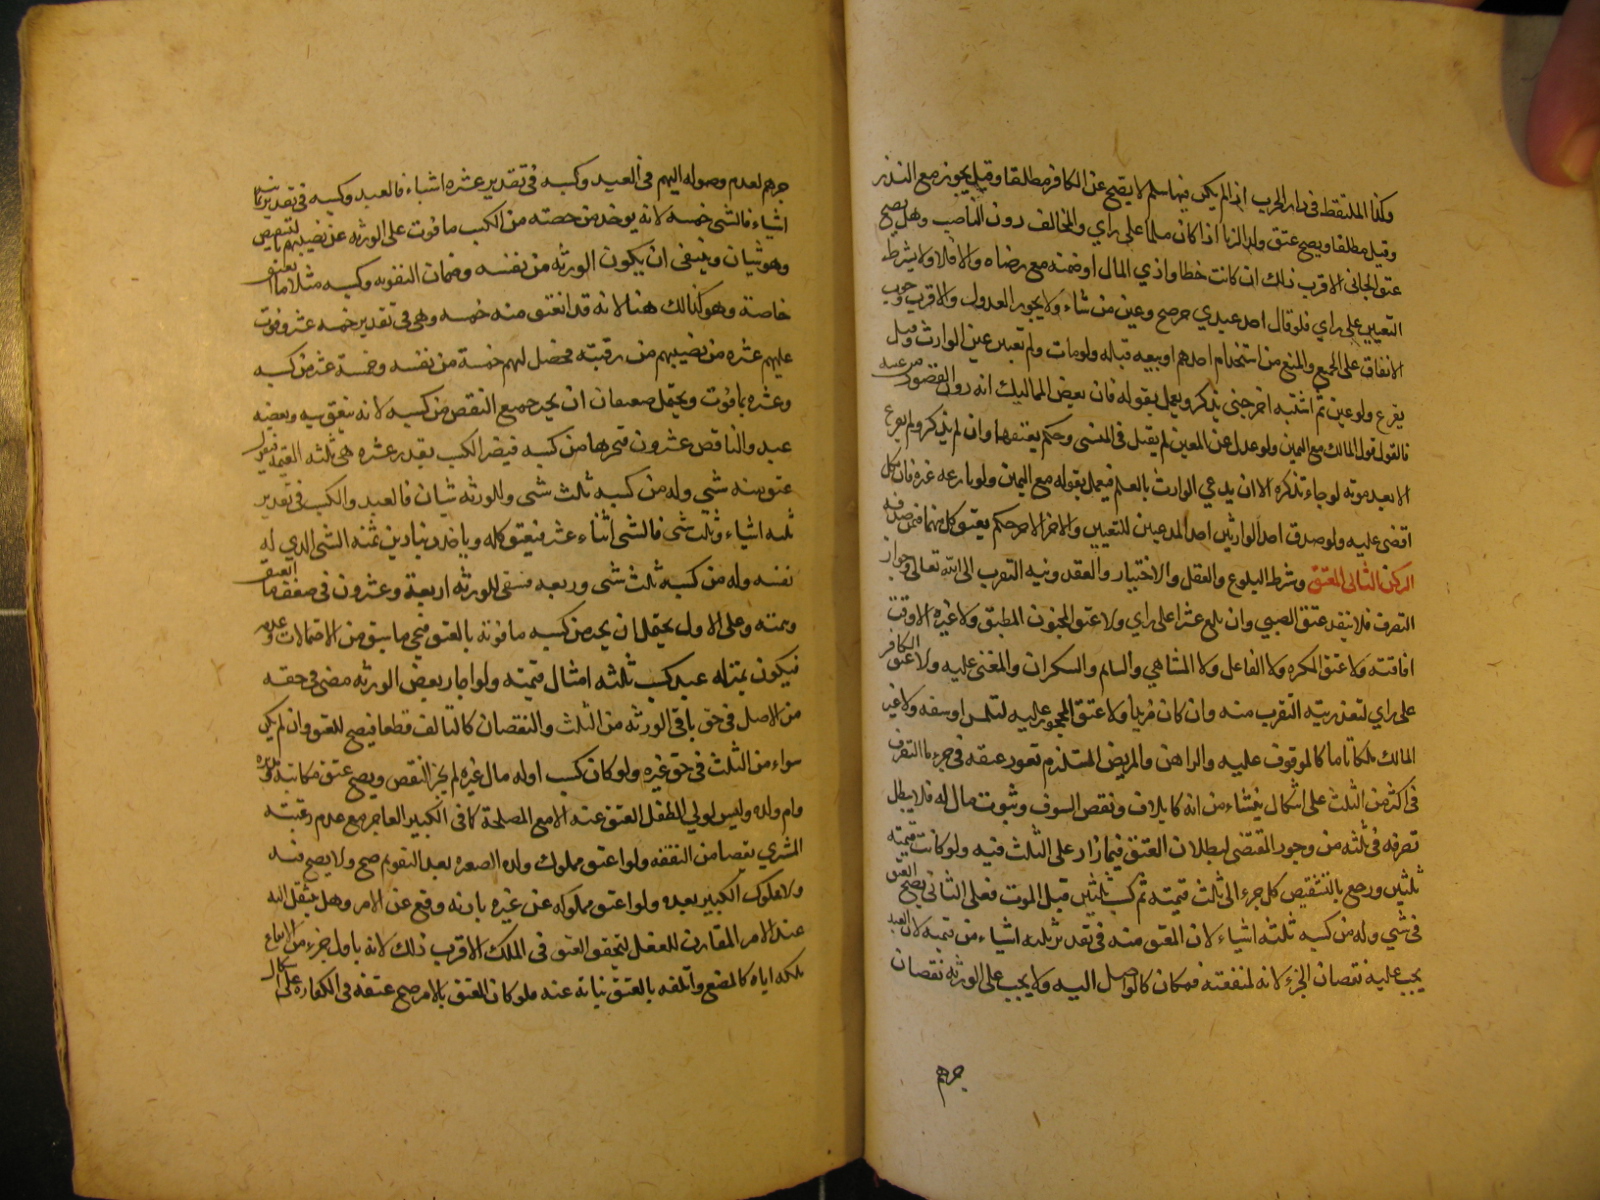 وكذا الملتقط في دار الحرب اذا لم يكن فيها مسلم لا يصح عن الكافر مطلقا وقيل يجوز مع النذر
وقيل مطلقا ويصح عتق ولد الزنا اذا كان مسلما على راي والمخالف دون الناصب وهل يصح
عتق الجاني الاقرب ذلك ان كانت خطا واذي المال او ضمنه مع رضاه والا فلا ولا يشرط
التعيين على راي فلو قال احد عبيدي حر صح وعين من شاء ولا يجوز العدول والاقرب وجوب
الانفاق على الجميع والمنع من استخدام احدهم او بيعه قباله ولو مات ولم تعين عين الوارث وقيل
يقرع ولو عين ثم اشتبه اخر حتى يذكر ويعمل بقوله فان بعض المماليك انه هو المقصود من عبده
فالقول قول المالك مع اليمين ولو عدل عن المعين لم يقبل في المنسى وحكم بعتقهما وان لم يذكر ولم يقرع
الا بعد موته لو جاء تذكره الا ان يدعي الوارث بالعلم فيعمل بقوله مع اليمين ولو نازعه غيره فان نكل
اقضى عليه ولو صدق احد الوارثين احد المدعيين للتعيين والاخر الاخر حكم بعتق كل منهما فمن صدقه
الركن الثاني المعتق وشرط البلوغ والعقل والاختيار والعقد ونية التقرب الى الله تعالى وجواز
التصرف فلا ينفذ عتق الصبي وان بلغ عشرا على راي ولا عتق المجنون المطبق ولا غيره الا وقت
افاقته ولا عتق المكره ولا الغافل ولا الساهي والنايم والسكران والمغمى عليه ولا عتق الكافر
على راي لتعذر نية التقرب منه وان كان قريبا ولا عتق المحجور عليه لفلس او سفه ولا غير
المالك ملكا تاما كالموقوف عليه والراهن والمريض المستلزم نفوذ عتقه في جزء ما التصرف
في اكثر من الثلث على اشكال ينشاء من انه كاتلاف ونقص السوق وثبوت مال له فلا يبطل
تصرفه في ثلثه من وجود المقتضى لبطلان العتق فيما زاد على الثلث فيه ولو كانت قيمته
ثلثين ورجع بالتنقيص كل جزء الى ثلث قيمته ثم كسب ثلثين قبل الموت فعلى الثاني يصح العتق
في شي وله من كسبه ثلثة اشياء لان العتق منه في تقدير ثلثة اشياء من قيمته لان العبد
يجب عليه نقصان الجزء لانه لمنفعته فكان كالواصل اليه ولا يجب على الورثة نقصان
جزءهم
جزءهم لعدم وصوله اليهم في العبد وكسبه في تقدير عشرة اشياء فالعبد وكسبه في تقدير ثمانية
اشياء فالشي خمسة لانه يوخذ من حصته من الكسب ما فوت على الورثة عن نصيبهم لتنقيص
وهو شيان وينبغى ان يكون الورثة من نفسه وضمان التفويه وكسبه مثلا ما انعتق
خاصة وهو كذلك هنا لانه قد انعتق منه خمسة وهي في تقدير خمسة عشر وفوت
عليهم عشرة من نصيبهم من رقبته فحصل لهم خمسة من نفسه وخمسة عشر من كسبه
وعشرة بما فوت ويحتمل ضعيفا ان يجبر جميع النقص من كسبه لانه بعتق بعضه
عبد والناقص عشرون فتجبرها من كسبه فيصير الكسب بقدر عشرة هي ثلثه القيمة فنقول
عتق منه شي وله من كسبه ثلث شي وللورثة شيان فالعبد والكسب في تقدير
ثلثه اشياء وثلث شي فالشي اثناء عشر فيعتق كله وياخذ دينارين ثمنه الشي الذي له
نفسه وله من كسبه ثلث شي وربعه فيبقى للورثة اربعة وعشرون في ضعف ما انعتق
وعتقه وعلى الاول يحتمل ان يجبر من كسبه ما فوته بالعتق فيجي ما سبق من الاحتمالات وعدمه
فيكون بمنزلة عبد كسب ثلثه امثال قيمته ولو اجاز بعض الورثة مضى في حقه
من الاصل في حق باقي الورثة من الثلث والنقصان كالتالف قطعا فيصح للعتق وان لم يكن
سواه من الثلث في حق غيره ولو كان كسب او له مال غيره لم يجز النقص ويصح عتق مكاتبه ومدبره
وام ولده وليس لولي الطفل العتق عنه الا مع المصلحة كما في الكبير العاجز مع عدم رغبته
المشتري تفصيا من النفقة ولو اعتق مملوك ولده الصغير بعد التقويم صح ولا يصح قبله
ولا مملوك الكبير بعده ولو اعتق مملوكه عن غيره باذنه وقع عن الامر وهل ينتقل اليه
عند الامر المقارن للفعل ليتحقق العتق في الملك الاقرب ذلك لانه باول جزء من الايقاع
ملكه اياه كالمضع واتلفه بالعتق نيابة عنه فلو كان العتق بالامر صح عتقه في الكفارة على